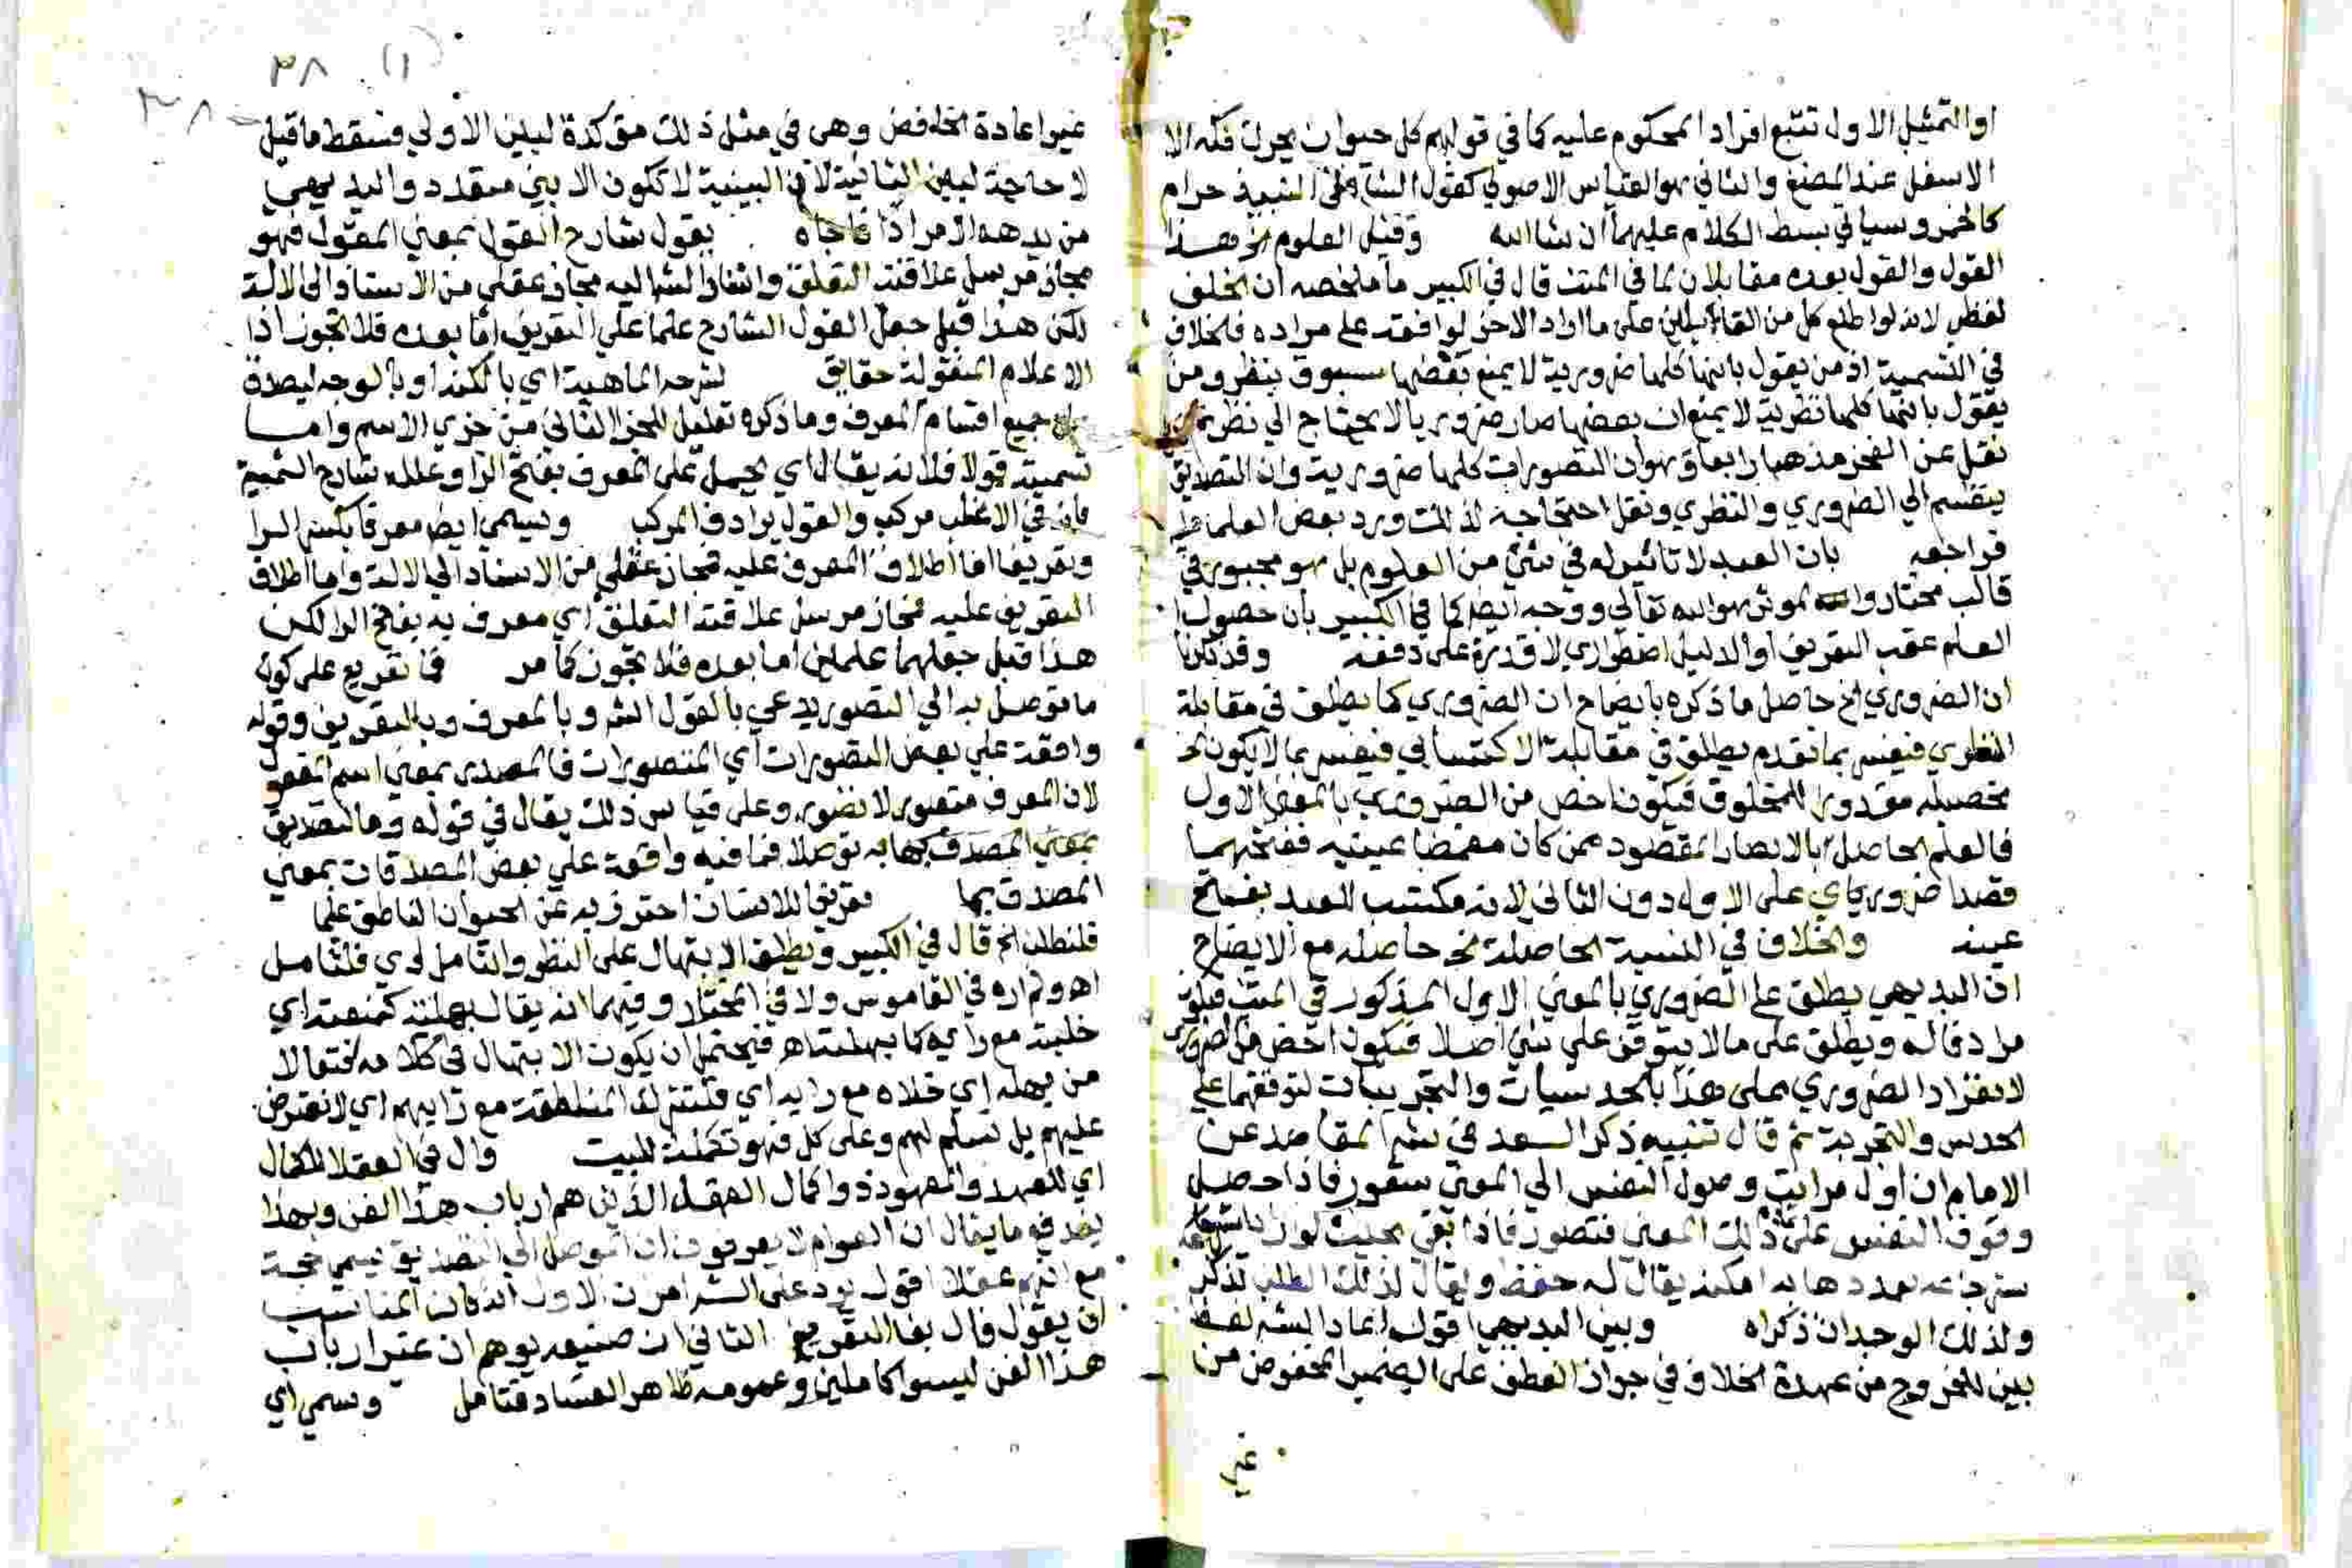 او التمثيل الاول تتبع افراد المحكوم عليه كما في قولهم كل حيوان يحرك فكه الا
الاسفل عند المضغ والثاني هو القياس الاصولي كقول الشافعي النبيذ حرام
كالخمر وسياتي بسط الكلام عليهما ان شا الله وقيل العلوم الخ هذا
القول والقول بعده مقابلان لما في المتن قال في الكبير ما ملخصه ان الخلف
لفظي لانه لو اطلع كل من القائلين على ما اراد الاخر لوافقه على مراده فالخلاف
في التسمية اذ من يقول بانها كلها ضرورية لا يمنع بعضها سبوق بنظر ومن
يقول بانها كلها نظرية لا يمنع ان بعضها صار ضروريا لا يحتاج الي نظر
نقل عن الفخر مذهبا رابعا وهو ان التصورات كلها ضرورية وان التصديق
ينقسم الي الضروري والنظري ونقل احتجاجه لذلك ورد بعض العلما
فراجعه بان العبد لا تاثير له في شي من العلوم بل هو مجبور في
قالب مختار والموثر هو الله تعالي ووجه ايضا كما في الكبير بان حصول
العلم عقب التعريف او الدليل اضطراري لا قدرة على دفعه وقد ذكرنا
ان الضروري الخ حاصل ما ذكره بايضاح ان الضروري كما يطلق في مقابلة
النظري فيفسر بما تقدم يطلق في مقابلة الاكتسابي فيفسر بما لا يكون
تحصيله مقدورا للمخلوق فيكون اخص من الضروري بالمعني الاول
فالعلم الحاصل بالابصار المقصود ممن كان مغمضا عينيه ففتحهما
قصدا ضروري اي على الاول دون الثاني لانه مكتسب للعبد بفتح
عينه والخلاف في النسبة الحاصلة الخ حاصله مع الايضاح
ان البديهي يطلق على الضروري بالمعني الاول المذكور في المتن فيكون
مرادفا له ويطلق على ما لا يتوقف علي شي اصلا فيكون اخص من الضروري
لانفراد الضروري على هذا بالحدسيات والتجريبات لتوقفهما علي
الحدس والتجربة ثم قال تنبيه ذكر السعد في شرح المقاصد عن
الامام ان اول مراتب وصول النفس الي المعني شعور فاذا حصل
وقوف النفس على ذلك المعني فتصور فاذا بقي بحيث لو اراد
استرجاعه بعد ذهابه امكنه يقال له حفظ ويقال لذلك الطلب تذكر
ولذلك الوجدان ذكر اه وبين البديهي اقول اعاد الش لفظ
بين للخروج من عهدة الخلاف في جواز العطف على الضمير المخفوض من
غير
٣٨ (١)
٣٨
غير اعادة الخافض وهي في مثل ذلك مؤكدة لبين الاولي فسقط ما قيل
لا حاجة لبين الثانية لان البينية لا تكون الا بين متعدد والبديهي
من بدهه الامر اذا فاجاه بقول شارح القول بمعني المقول فهو
مجاز مرسل علاقته التعلق واسناد الشرح اليه مجاز عقلي من الاسناد الى الالة
لكن هذا قبل جعل القول الشارح علما علي التعريف اما بعده فلا تجوز اذا
الاعلام المنقولة حقايق لشرحه الماهية اي بالكنه او بالوجه ليصدق
جميع اقسام المعرف وما ذكره تعليل للجز الثاني من جزي الاسم واما
تسميته قولا فلانه يقال اي يحمل على المعرف بفتح الرا وعلله شارح الشمسية
بانه في الاغلب مركب والقول يرادف المركب ويسمي ايضا معرفا بكسر الرا
وتعريفا اما اطلاق المعرف عليه فمجاز عقلي من الاسناد الي الالة واما اطلاق
التعريف عليه فمجاز مرسل علاقته التعلق اي معرف به بفتح الرا لكن
هذا قبل جعلهما علمين اما بعده فلا تجوز كما مر فما تفريع على كون
ما توصل به الي التصور يدعي بالقول الش وبالمعرف وبالتعريف وقوله
واقعة علي بعض التصورات اي المتصورات فالمصدر بمعني اسم المفعول
لان المعرف متصور لا تصور وعلى قياس ذلك يقال في قوله وما لتصديق
بمعني المصدق بها به توصلا فما فيه واقعة علي بعض المصدقات بمعني
المصدق بها تعريفا للانسان احترز به عن الحيوان الناطق علما
فلنطلق الخ قال في الكبير ويطلق الابتهال على النظر والتامل اي فلنتامل
اه ولم اره في القاموس ولا في المختار وفيهما انه يقال بهلته كمنعته اي
خليته مع رايه كابهلته اه فيحتمل ان يكون الابتهال في كلامه افتعالا
من بهله اي خلاه مع رايه اي فلنترك المناطقة مع رايهم اي لا نعترض
عليهم بل نسلم لهم وعلى كل فهو تكملة للبيت وال في العقلا للكمال
اي للعهد والمعهود ذوا كمال العقل الذين هم ارباب هذا الفن وبهذا
يندفع ما يقال ان العوام لا يعرفون ان الموصل الي التصديق يسمي حجة
مع انهم عقلا اقول يرد على الش امران الاول انه كان المناسب
ان يقول قال بفا التفريع الثاني ان صنيعه يوهم ان غير ارباب
هذا الفن ليسوا كاملين وعمومه ظاهر الفساد فتامل وسمي اي